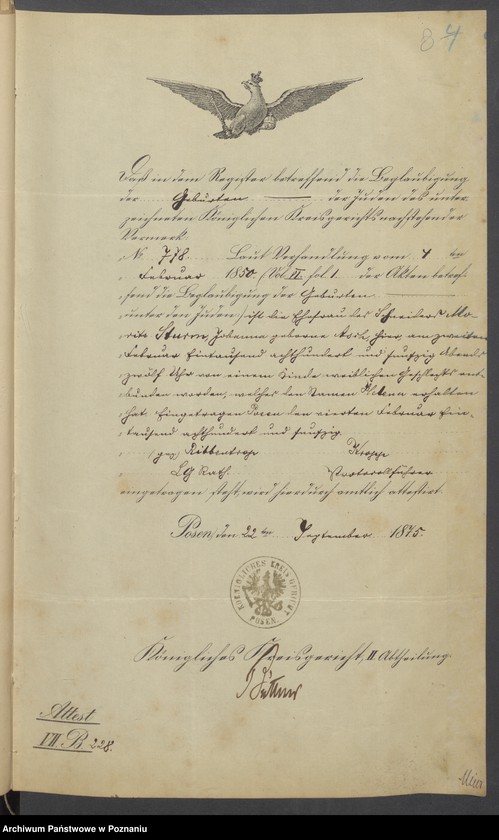 84
Daß in dem Register betreffend die Beglaubigung
der Geburten der Juden des unter-
zeichneten Königlichen Kreisgerichts nachstehender
Vermerk:
„No 778. Laut Verhandlung vom 4ten
„Februar 1850 (Vol. II. fol. 1. der Akten betref-
„fend die Beglaubigung der Geburten
„unter den Juden) ist die Ehefrau des Schneiders Mo-
„ritz Sturm, Johanna geborne hier, am zweiten
„Februar Eintausend achthundert und fünfzig Abends
„zwölf Uhr von einem Kinde weiblichen Geschlechts ent-
„bunden worden, welches den Namen Helena erhalten
„hat. Eingetragen Posen den vierten Februar Ein-
„tausend achthundert und fünfzig.
„ (gez) Ribbentropp Kropp
„ LG Rath. Protocollführer
eingetragen steht, wird hierdurch amtlich attestirt.
Posen, den 22ten September 1875.
KOENIGLICHES KREIS-GERICHT
POSEN.
Königliches Kreisgericht, II Abtheilung.
Attest
VII. B 228.
Archiwum Państwowe w Poznaniu